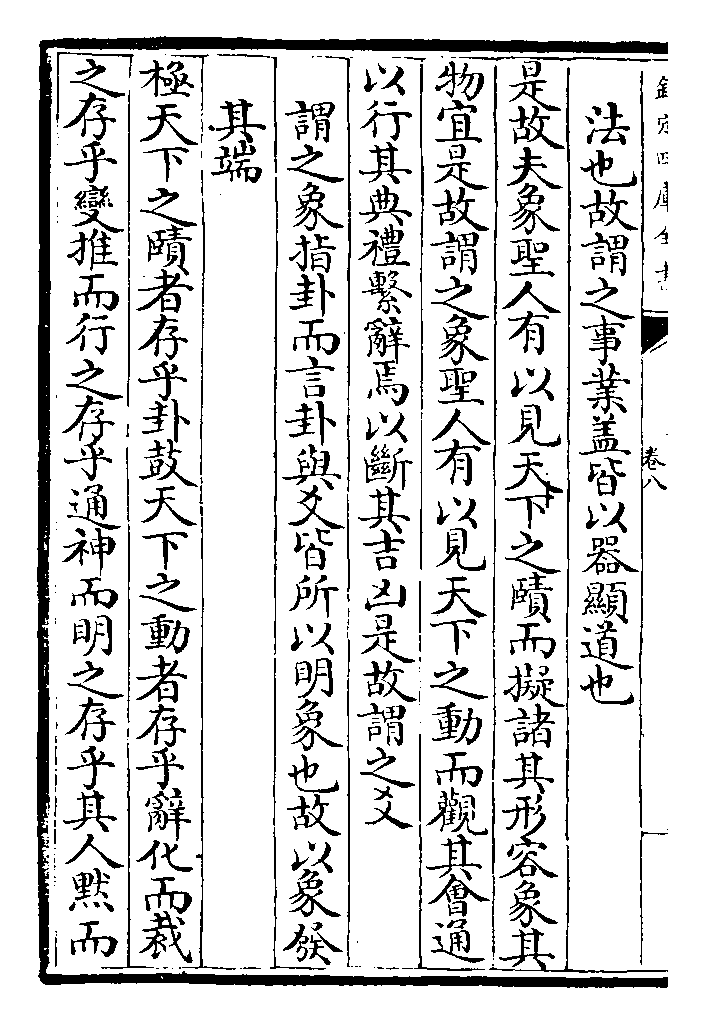 欽定四庫全書
卷八
法也故謂之事業蓋皆以器顯道也
是故夫象聖人有以見天下之賾而擬諸其形容象其
物宜是故謂之象聖人有以見天下之動而觀其會通
以行其典禮繫辭焉以斷其吉凶是故謂之爻
謂之象指卦而言卦與爻皆所以明象也故以象發
其端
極天下之賾者存乎卦鼓天下之動者存乎辭化而裁
之存乎變推而行之存乎通神而明之存乎其人黙而